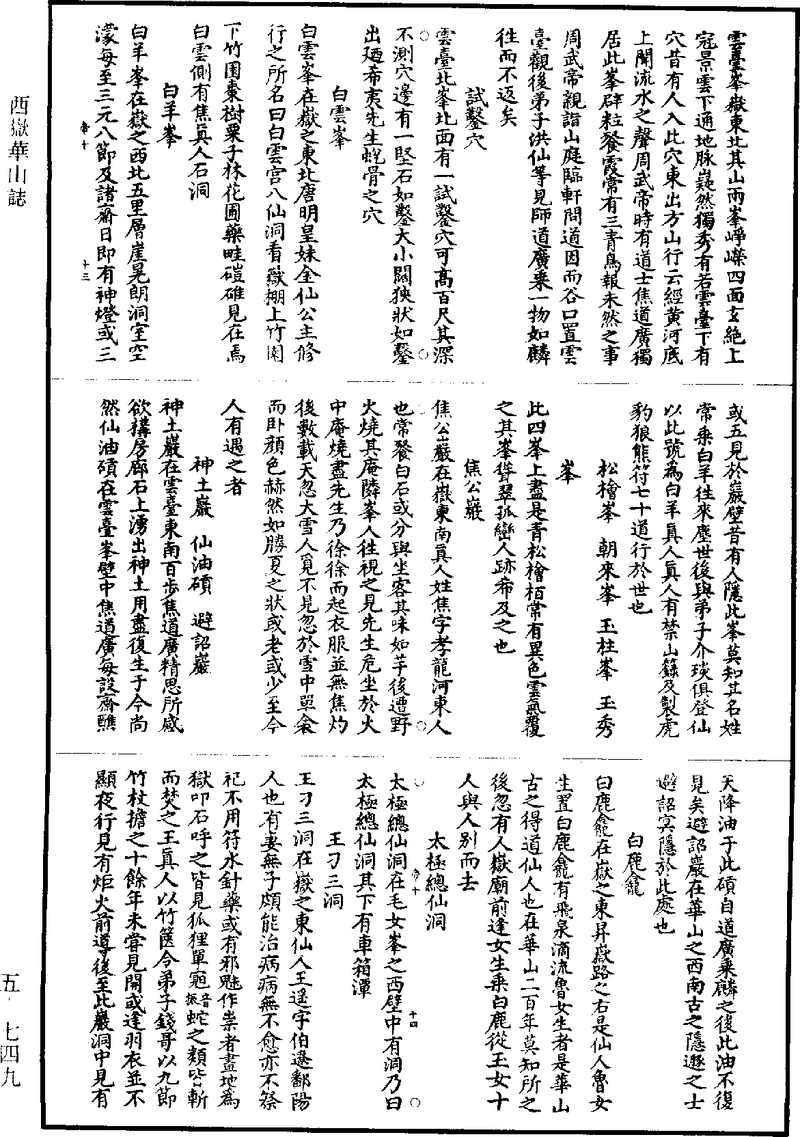 雲臺峯嶽東北其山兩峯崢嶸四面玄絶上
冠景雲下通地脉嶷然獨秀有若雲臺下有
穴昔有人入此穴東出方山行云經黄河底
上聞流水之聲周武帝時有道士焦道廣獨
居此峯辟粒餐霞常有三青鳥報未然之事
周武帝親詣山庭臨軒問道因而谷口置雲
臺觀後弟子洪仙等見師道廣乗一物如麟
徃而不返矣
試鑿穴
雲臺北峯北面有一試鑿穴可髙百尺其深
不測穴邊有一堅石如鑿大小闊狹狀如鑿
出廼希夷先生蛻骨之穴
白雲峯
白雲峯在嶽之東北唐明皇妹金仙公主修
行之所名曰白雲宫八仙洞看嶽棚上竹園
下竹園棗樹粟子林花圃藥畦磑碓見在焉
白雲側有焦真人石洞
白羊峯
白羊峯在嶽之西北五里層崖晃朗洞室空
濛每至三元八節及諸齋日即有神燈或三
帝十
十三
或五見於巖壁昔有人隱此峯莫知其名姓
常乗白羊徃來塵世後與弟子介琰俱登仙
以此號為白羊真人真人有禁山籙及製虎
豹狼熊符七十道行於世也
松檜峯　朝來峯　玉柱峯　玉秀
峯
此四峯上盡是青松檜栢常有異色雲氣覆
之其峯聳翠孤巒人跡希及之也
焦公巖
焦公巖在嶽東南真人姓焦字孝龍河東人
也常餐白石或分與坐客其味如芋後遭野
火燒其庵隣峯人徃視之見先生危坐於火
中庵燒盡先生乃徐徐而起衣服並無焦灼
後數載天忽大雪人覓不見忽於雪中單衾
而卧顔色赫然如勝夏之狀或老或少至今
人有遇之者
神土巖　仙油磧　避詔巖
神土巖在雲臺東南百步焦道廣精思所感
欲構房廊石上湧出神土用盡復生于今尚
然仙油磧在雲臺峯壁中焦道廣每設齋醮
天降油于此磧自道廣乗麟之後此油不復
見矣避詔巖在華山之西南古之隱遯之士
避詔冥隱於此處也
白鹿龕
白鹿龕在嶽之東昇嶽路之右是仙人魯女
生置白鹿龕有飛泉滴流魯女生者是華山
古之得道仙人也在華山二百年莫知所之
後忽有人嶽廟前逢女生乗白鹿從玉女十
人與人别而去
太極總仙洞
太極總仙洞在毛女峯之西壁中有洞乃曰
帝十
十四
太極總仙洞其下有車箱潭
王刁三洞
王刁三洞在嶽之東仙人王遥字伯遼鄱陽
人也有妻無子頗能治病病無不愈亦不祭
祀不用符水針藥或有邪魅作祟者畫地為
獄叩石呼之皆見狐狸單㝹音振蛇之類皆斬
而焚之王真人以竹篋令弟子錢哥以九節
竹杖擔之十餘年未嘗見開或逢羽衣並不
顯夜行見有炬火前導後至此巖洞中見有
西嶽華山誌
五·七四九